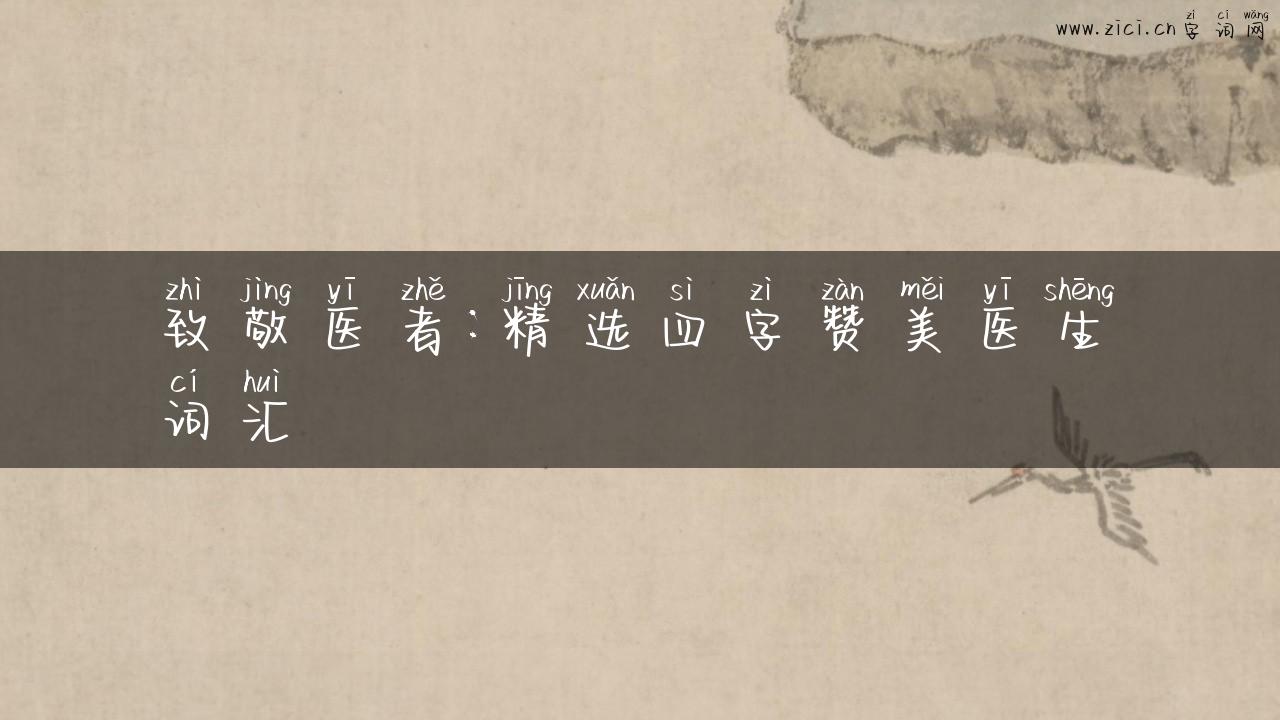 zì cí wǎng
www.zici.cn 字词网
zhì jìng yī zhě jīng xuǎn sì zì zàn měi yī shēng
致敬医者：精选四字赞美医生
cí huì
词汇